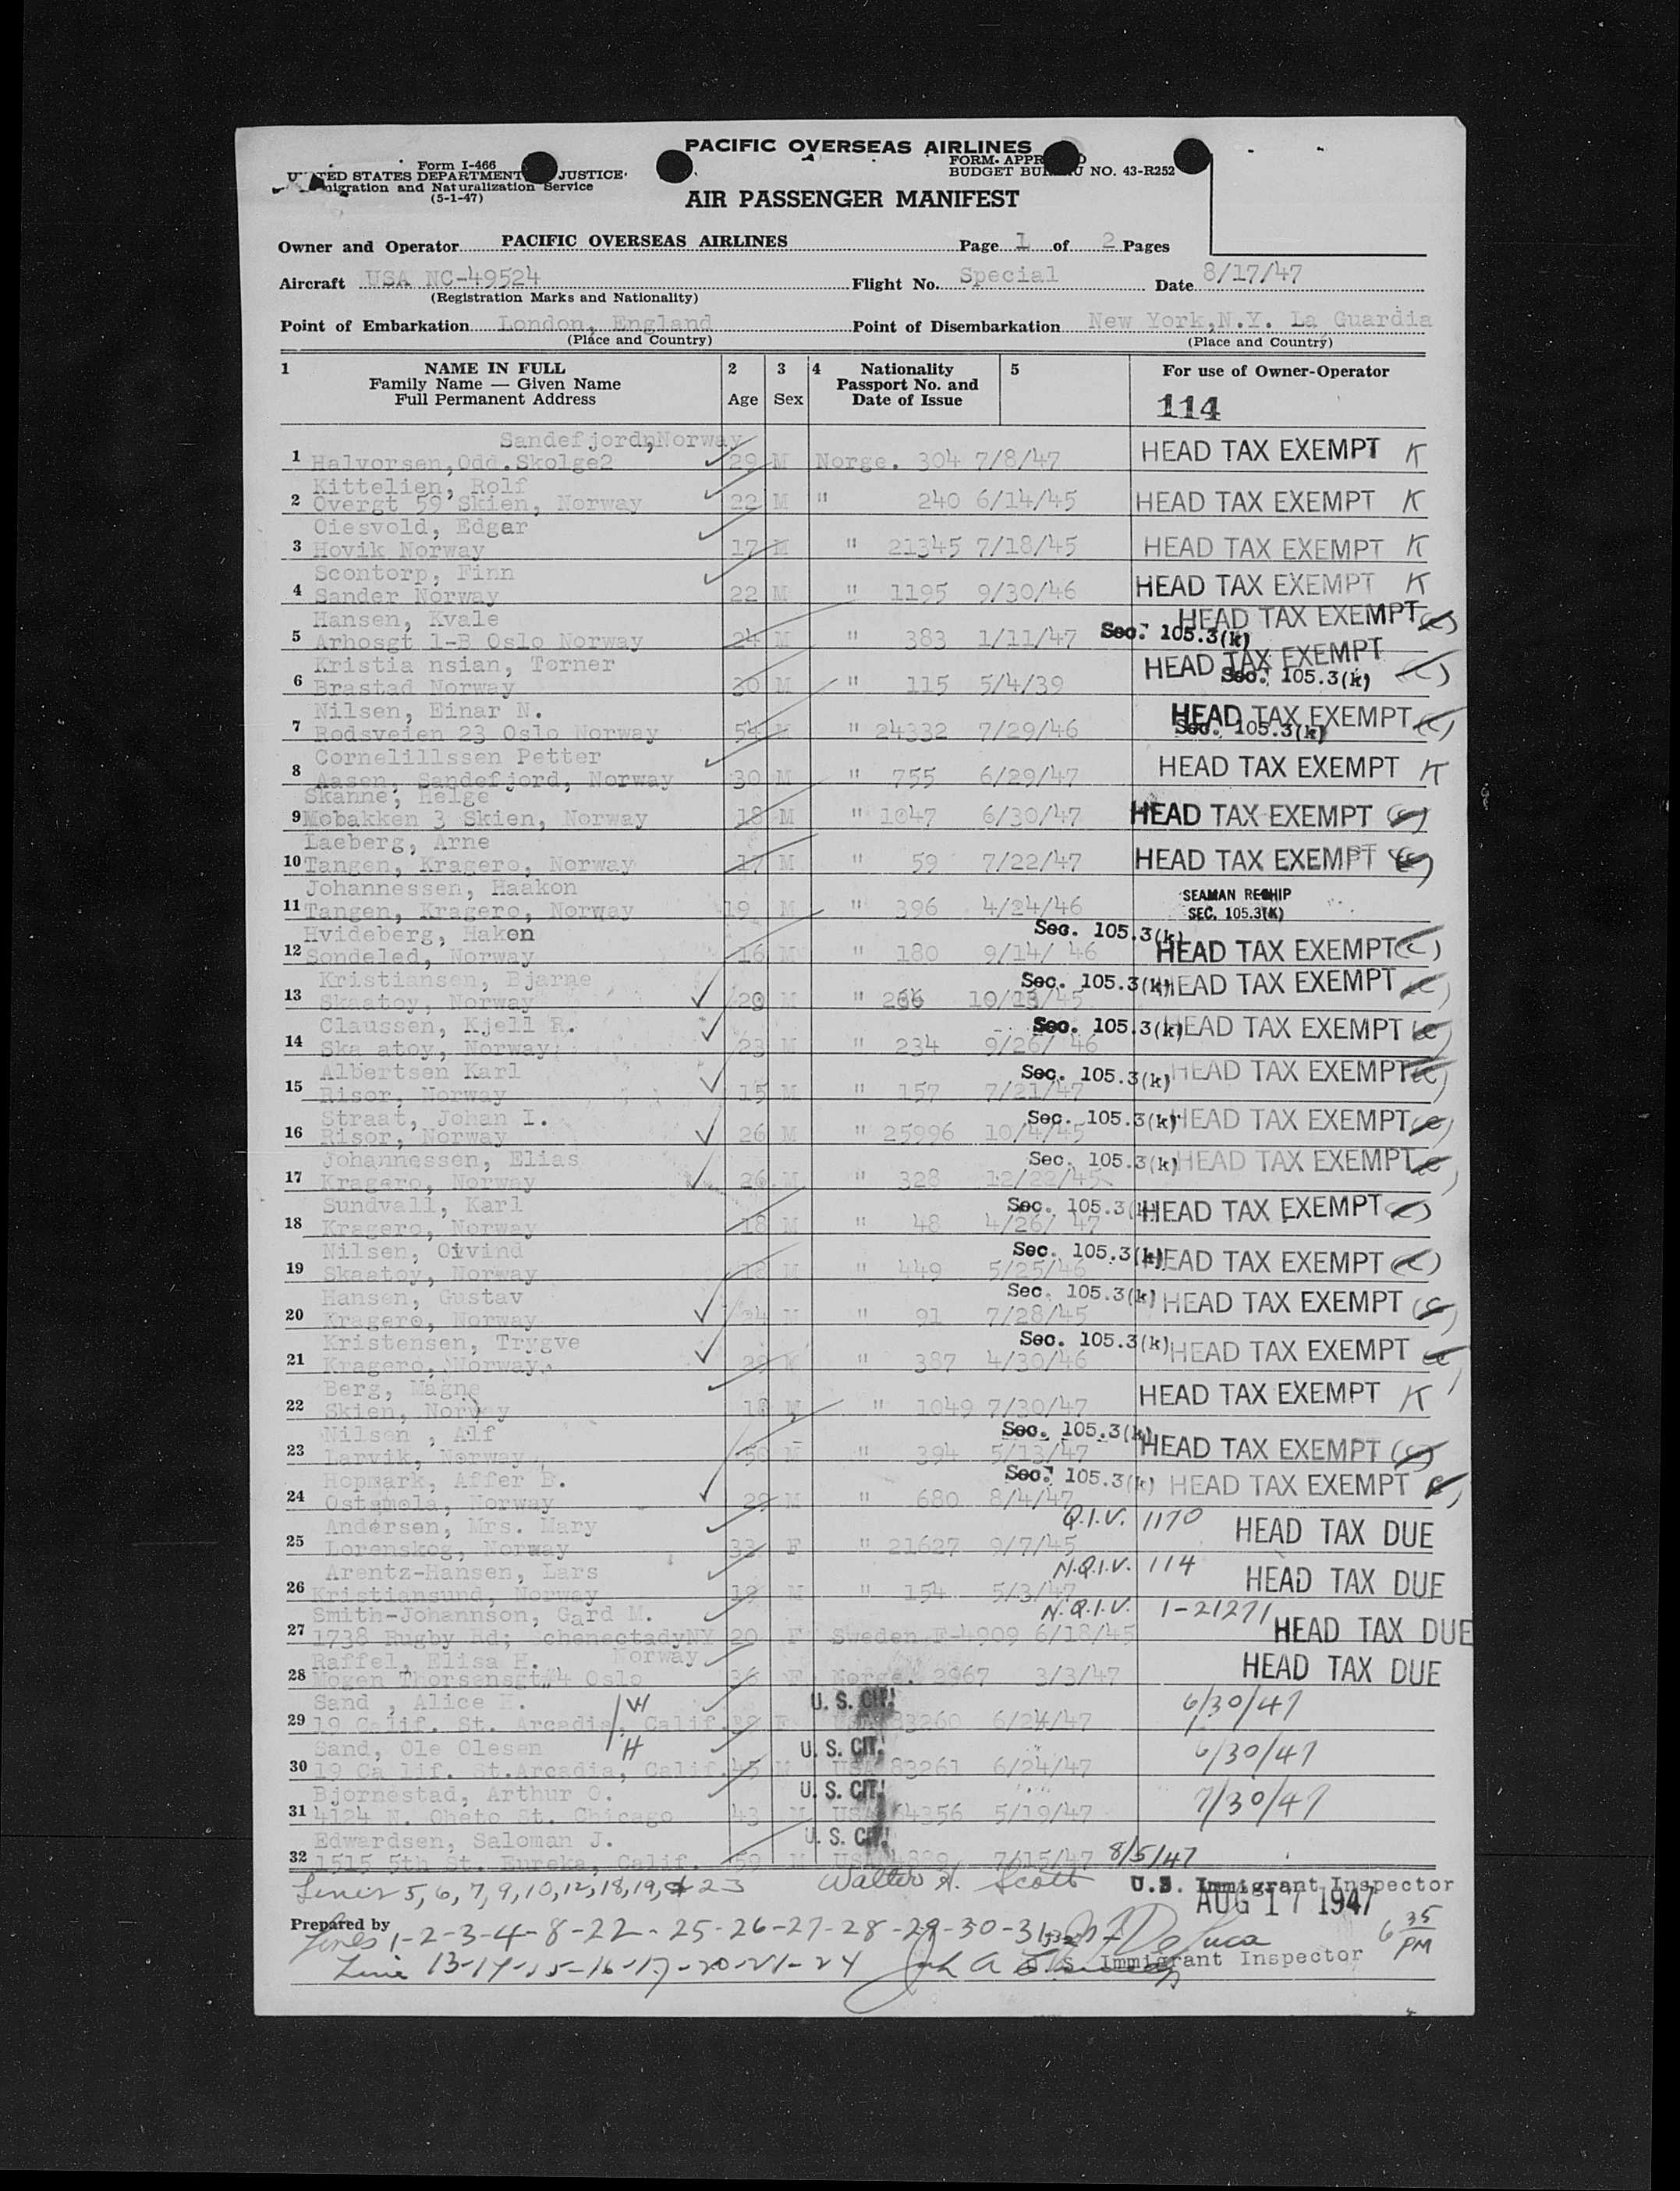 PACIFIC OVERSEAS AIRLINES
Form I-466
UNITED STATES DEPARTMENT JUSTICE
Immigration and Naturalization Service
(5-1-47)
FORM APPR D
BUDGET BUREAU NO. 43-R252
AIR PASSENGER MANIFEST
Owner and Operator PACIFIC OVERSEAS AIRLINES Page 1 of 2 Pages
Aircraft USA NC-49524 Flight No. Special Date 8/17/47
(Registration Marks and Nationality)
Point of Embarkation London, England Point of Disembarkation New York,N.Y. La Guardia
(Place and Country) (Place and Country)
1 NAME IN FULL 2 3 4 Nationality 5 For use of Owner-Operator
Family Name — Given Name Passport No. and
Full Permanent Address Age Sex Date of Issue 114
Sandefjord,Norway
1 Halvorsen,Odd.Skolge2 29 M Norge. 304 7/8/47 HEAD TAX EXEMPT K
Kittelien, Rolf
2 Overgt 59 Skien, Norway 22 M " 240 6/14/45 HEAD TAX EXEMPT K
Oiesvold, Edgar
3 Hovik Norway 17 M " 21345 7/18/45 HEAD TAX EXEMPT K
Scontorp, Finn
4 Sander Norway 22 M " 1195 9/30/46 HEAD TAX EXEMPT K
Hansen, Kvale HEAD TAX EXEMPT
5 Arhosgt 1-B Oslo Norway 24 M " 383 1/11/47 Sec. 105.3(k)
Kristia nsian, Torner HEAD TAX EXEMPT
6 Brastad Norway 30 M " 115 5/4/39 Sec. 105.3(k)
Nilsen, Einar N. HEAD TAX EXEMPT
7 Rodsveien 23 Oslo Norway 54 M " 24332 7/29/46 Sec. 105.3(k)
Cornelillssen Petter
8 Aasen, Sandefjord, Norway 30 M " 755 6/29/47 HEAD TAX EXEMPT K
Skanne, Helge
9 Mobakken 3 Skien, Norway 18 M " 1047 6/30/47 HEAD TAX EXEMPT
Laeberg, Arne
10 Tangen, Kragero, Norway 17 M " 59 7/22/47 HEAD TAX EXEMPT
Johannessen, Haakon SEAMAN RESHIP
11 Tangen, Kragero, Norway 19 M " 396 4/24/46 SEC. 105.3(K)
Hvideberg, Haken Sec. 105.3(k)
12 Sondeled, Norway 16 M " 180 9/14/ 46 HEAD TAX EXEMPT
Kristiansen, Bjarne Sec. 105.3(k) HEAD TAX EXEMPT
13 Skaatoy, Norway 20 M "
Claussen, Kjell R. Sec. 105.3(k) HEAD TAX EXEMPT
14 Ska atoy, Norway 23 M " 234 9/26/ 46
Albertsen Karl Sec. 105.3(k) HEAD TAX EXEMPT
15 Risor, Norway 15 M " 157 7/21/47
Straat, Johan I. Sec. 105.3(k) HEAD TAX EXEMPT
16 Risor, Norway 26 M " 25996 10/4/45
Johannessen, Elias Sec. 105.3(k) HEAD TAX EXEMPT
17 Kragero, Norway 26 M " 328 12/22/45
Sundvall, Karl Sec. 105.3(k) HEAD TAX EXEMPT
18 Kragero, Norway 18 M " 48 4/26/ 47
Nilsen, Oivind Sec. 105.3(k) HEAD TAX EXEMPT
19 Skaatoy, Norway 18 M " 449 5/25/46
Hansen, Gustav Sec. 105.3(k) HEAD TAX EXEMPT
20 Kragero, Norway 24 M " 91 7/28/45
Kristensen, Trygve Sec. 105.3(k) HEAD TAX EXEMPT
21 Kragero, Norway. 29 M " 387 4/30/46
Berg, Magne HEAD TAX EXEMPT K
22 Skien, Norway 18 M " 1049 7/30/47
Nilsen , Alf Sec. 105.3(k) HEAD TAX EXEMPT
23 Larvik, Norway 50 M " 394 5/13/47
Hopmark, Affer B. Sec. 105.3(k) HEAD TAX EXEMPT
24 Ostamola, Norway 29 M " 680 8/4/47
Andersen, Mrs. Mary Q.I.V. 1170 HEAD TAX DUE
25 Lorenskog, Norway 33 F " 21627 9/7/45
Arentz-Hansen, Lars N.Q.I.V. 114 HEAD TAX DUE
26 Kristiansund, Norway 19 M " 154 5/3/47
Smith-Johannson, Gard M. N.Q.I.V. 1-21271 HEAD TAX DUE
27 1738 Rugby Rd; SchenectadyNY 20 F Sweden F-4909 6/18/45
Raffel, Elisa H. Norway HEAD TAX DUE
28 Mogen Thorsensgt#4 Oslo 36 F Norge. 2967 3/3/47
Sand , Alice H. W U. S. CIT. 6/30/47
29 19 Calif. St. Arcadia, Calif. F USA 83260 6/24/47
Sand, Ole Olesen H U. S. CIT. 6/30/47
30 19 Ca lif. St.Arcadia, Calif. 45 M USA 83261 6/24/47
Bjornestad, Arthur O. U. S. CIT. 7/30/47
31 4124 N. Oheto St. Chicago 43 M USA 64356 5/19/47
Edwardsen, Saloman J. U. S. CIT.
32 1515 5th St. Eureka, Calif. 59 M USA 7/15/47 8/5/47
Lines 5,6,7,9,10,12,18,19,&23 Walter H. Scott U.S. Immigrant Inspector
AUG 17 1947
Prepared by
Lines 1-2-3-4-8-22-25-26-27-28-29-30-31-32 DeLuca 6 35 PM
Line 13-14-15-16-17-20-21-24 U.S. Immigrant Inspector